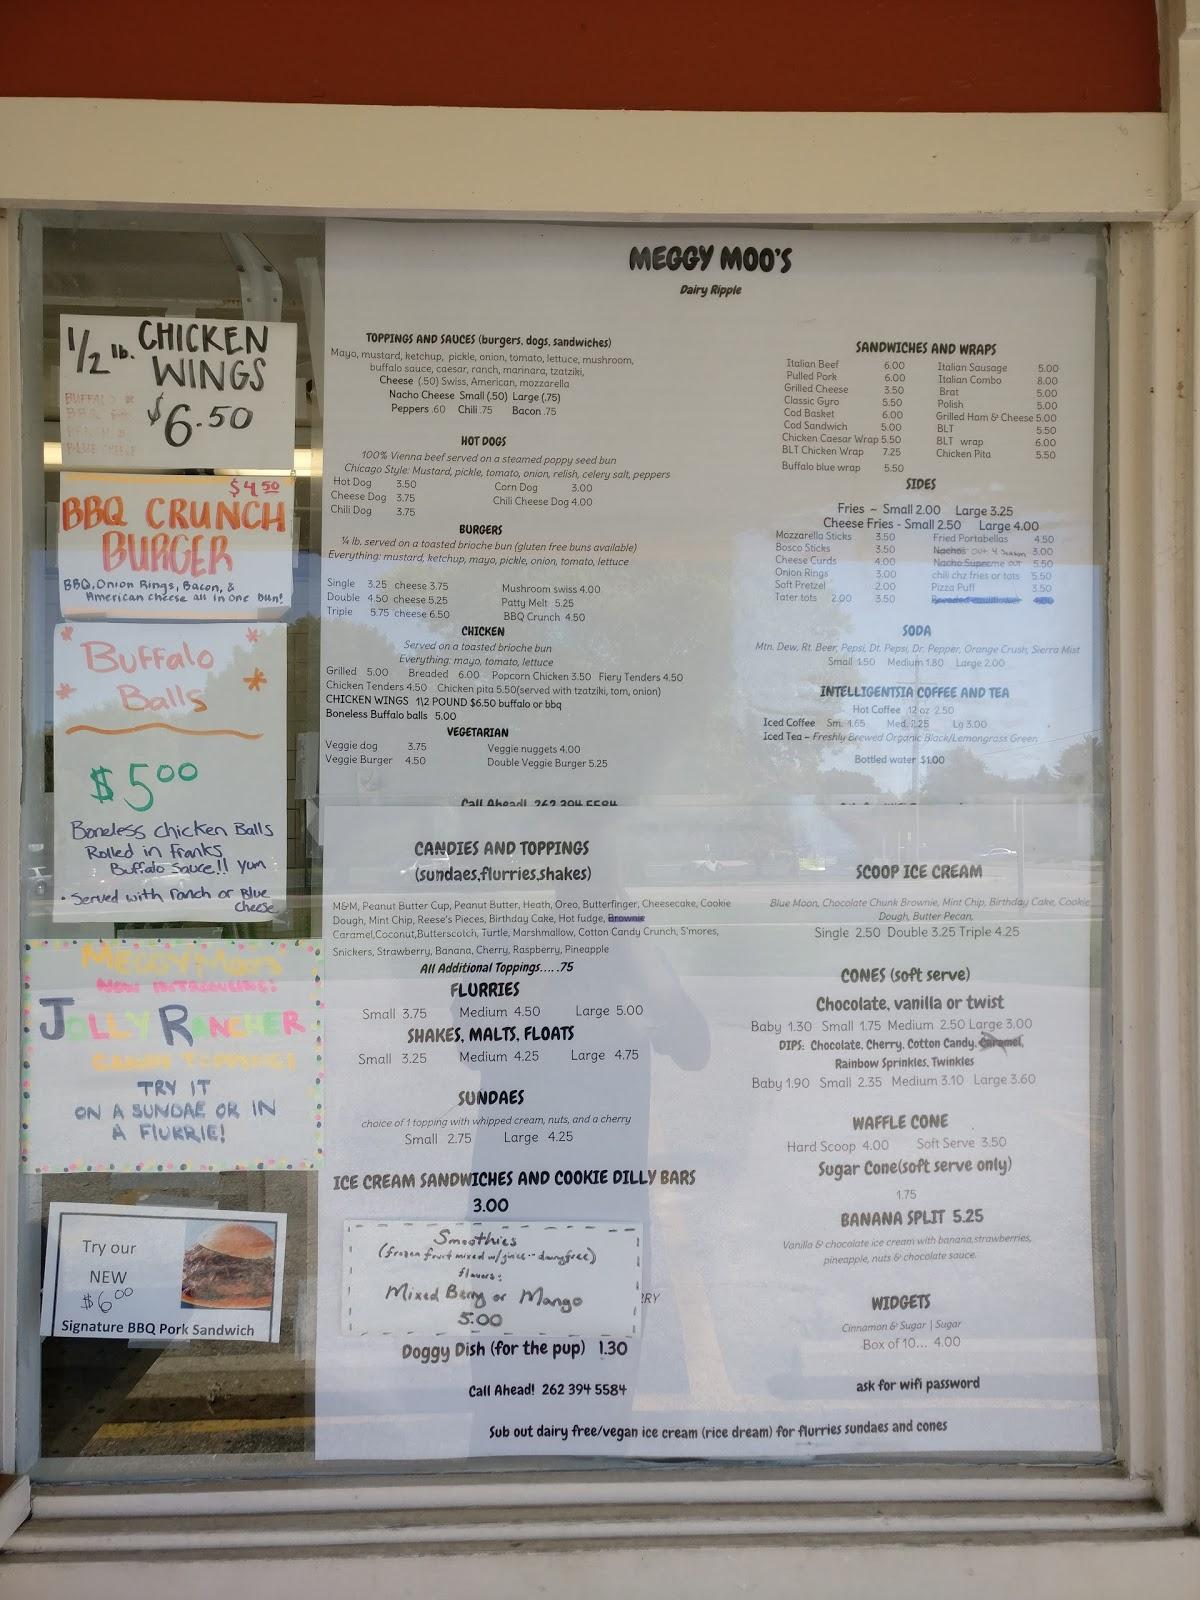 MEGGY MOO'S
Dairy Ripple
1/2 lb. CHICKEN
WINGS
$6.50
BUFFALO
BBQ
RANCH
BLUE CHEESE
$4.50
BBQ CRUNCH
BURGER
BBQ, Onion Rings, Bacon, &
American cheese all in one bun!
Buffalo
Balls
$5.00
Boneless chicken Balls
Rolled in Franks
Buffalo Sauce!! yum
• Served with ranch or Blue
cheese
MEGGY MOOS'
NOW INTRODUCING!
JOLLY RANCHER
CANDY TOPPING!
TRY IT
ON A SUNDAE OR IN
A FLURRIE!
Try our
NEW
$6.00
Signature BBQ Pork Sandwich
TOPPINGS AND SAUCES (burgers, dogs, sandwiches)
Mayo, mustard, ketchup, pickle, onion, tomato, lettuce, mushroom,
buffalo sauce, caesar, ranch, marinara, tzatziki,
Cheese (.50) Swiss, American, mozzarella
Nacho Cheese Small (.50) Large (.75)
Peppers .60 Chili .75 Bacon .75
HOT DOGS
100% Vienna beef served on a steamed poppy seed bun
Chicago Style: Mustard, pickle, tomato, onion, relish, celery salt, peppers
Hot Dog 3.50 Corn Dog 3.00
Cheese Dog 3.75 Chili Cheese Dog 4.00
Chili Dog 3.75
BURGERS
¼ lb. served on a toasted brioche bun (gluten free buns available)
Everything: mustard, ketchup, mayo, pickle, onion, tomato, lettuce
Single 3.25 cheese 3.75 Mushroom swiss 4.00
Double 4.50 cheese 5.25 Patty Melt 5.25
Triple 5.75 cheese 6.50 BBQ Crunch 4.50
CHICKEN
Served on a toasted brioche bun
Everything: mayo, tomato, lettuce
Grilled 5.00 Breaded 6.00 Popcorn Chicken 3.50 Fiery Tenders 4.50
Chicken Tenders 4.50 Chicken pita 5.50(served with tzatziki, tom, onion)
CHICKEN WINGS 1\2 POUND $6.50 buffalo or bbq
Boneless Buffalo balls 5.00
VEGETARIAN
Veggie dog 3.75 Veggie nuggets 4.00
Veggie Burger 4.50 Double Veggie Burger 5.25
Call Ahead! 262 394 5584
SANDWICHES AND WRAPS
Italian Beef 6.00 Italian Sausage 5.00
Pulled Pork 6.00 Italian Combo 8.00
Grilled Cheese 3.50 Brat 5.00
Classic Gyro 5.50 Polish 5.00
Cod Basket 6.00 Grilled Ham & Cheese 5.00
Cod Sandwich 5.00 BLT 5.50
Chicken Caesar Wrap 5.50 BLT wrap 6.00
BLT Chicken Wrap 7.25 Chicken Pita 5.50
Buffalo blue wrap 5.50
SIDES
Fries ~ Small 2.00 Large 3.25
Cheese Fries - Small 2.50 Large 4.00
Mozzarella Sticks 3.50 Fried Portabellas 4.50
Bosco Sticks 3.50 Nachos out 4 season 3.00
Cheese Curds 4.00 Nacho Supreme out 5.50
Onion Rings 3.00 chili chz fries or tots 5.50
Soft Pretzel 2.00 Pizza Puff 3.50
Tater tots 2.00 3.50 Breaded cauliflower 4.00
SODA
Mtn. Dew, Rt. Beer, Pepsi, Dt. Pepsi, Dr. Pepper, Orange Crush, Sierra Mist
Small 1.50 Medium 1.80 Large 2.00
INTELLIGENTSIA COFFEE AND TEA
Hot Coffee 12 oz 2.50
Iced Coffee Sm. 1.65 Med. 2.25 Lg 3.00
Iced Tea – Freshly Brewed Organic Black/Lemongrass Green
Bottled water $1.00
CANDIES AND TOPPINGS
(sundaes,flurries,shakes)
M&M, Peanut Butter Cup, Peanut Butter, Heath, Oreo, Butterfinger, Cheesecake, Cookie
Dough, Mint Chip, Reese's Pieces, Birthday Cake, Hot fudge, Brownie
Caramel,Coconut,Butterscotch, Turtle, Marshmallow, Cotton Candy Crunch, S'mores,
Snickers, Strawberry, Banana, Cherry, Raspberry, Pineapple
All Additional Toppings.....75
FLURRIES
Small 3.75 Medium 4.50 Large 5.00
SHAKES, MALTS, FLOATS
Small 3.25 Medium 4.25 Large 4.75
SUNDAES
choice of 1 topping with whipped cream, nuts, and a cherry
Small 2.75 Large 4.25
ICE CREAM SANDWICHES AND COOKIE DILLY BARS
3.00
Smoothies
(frozen fruit mixed w/juice -- dairyfree)
flavors:
Mixed Berry or Mango
5.00
RRY
Doggy Dish (for the pup) 1.30
Call Ahead! 262 394 5584
SCOOP ICE CREAM
Blue Moon, Chocolate Chunk Brownie, Mint Chip, Birthday Cake, Cookie
Dough, Butter Pecan,
Single 2.50 Double 3.25 Triple 4.25
CONES (soft serve)
Chocolate, vanilla or twist
Baby 1.30 Small 1.75 Medium 2.50 Large 3.00
DIPS: Chocolate, Cherry, Cotton Candy, Caramel,
Rainbow Sprinkles, Twinkles
Baby 1.90 Small 2.35 Medium 3.10 Large 3.60
WAFFLE CONE
Hard Scoop 4.00 Soft Serve 3.50
Sugar Cone(soft serve only)
1.75
BANANA SPLIT 5.25
Vanilla & chocolate ice cream with banana,strawberries,
pineapple, nuts & chocolate sauce.
WIDGETS
Cinnamon & Sugar | Sugar
Box of 10... 4.00
ask for wifi password
Sub out dairy free/vegan ice cream (rice dream) for flurries sundaes and cones